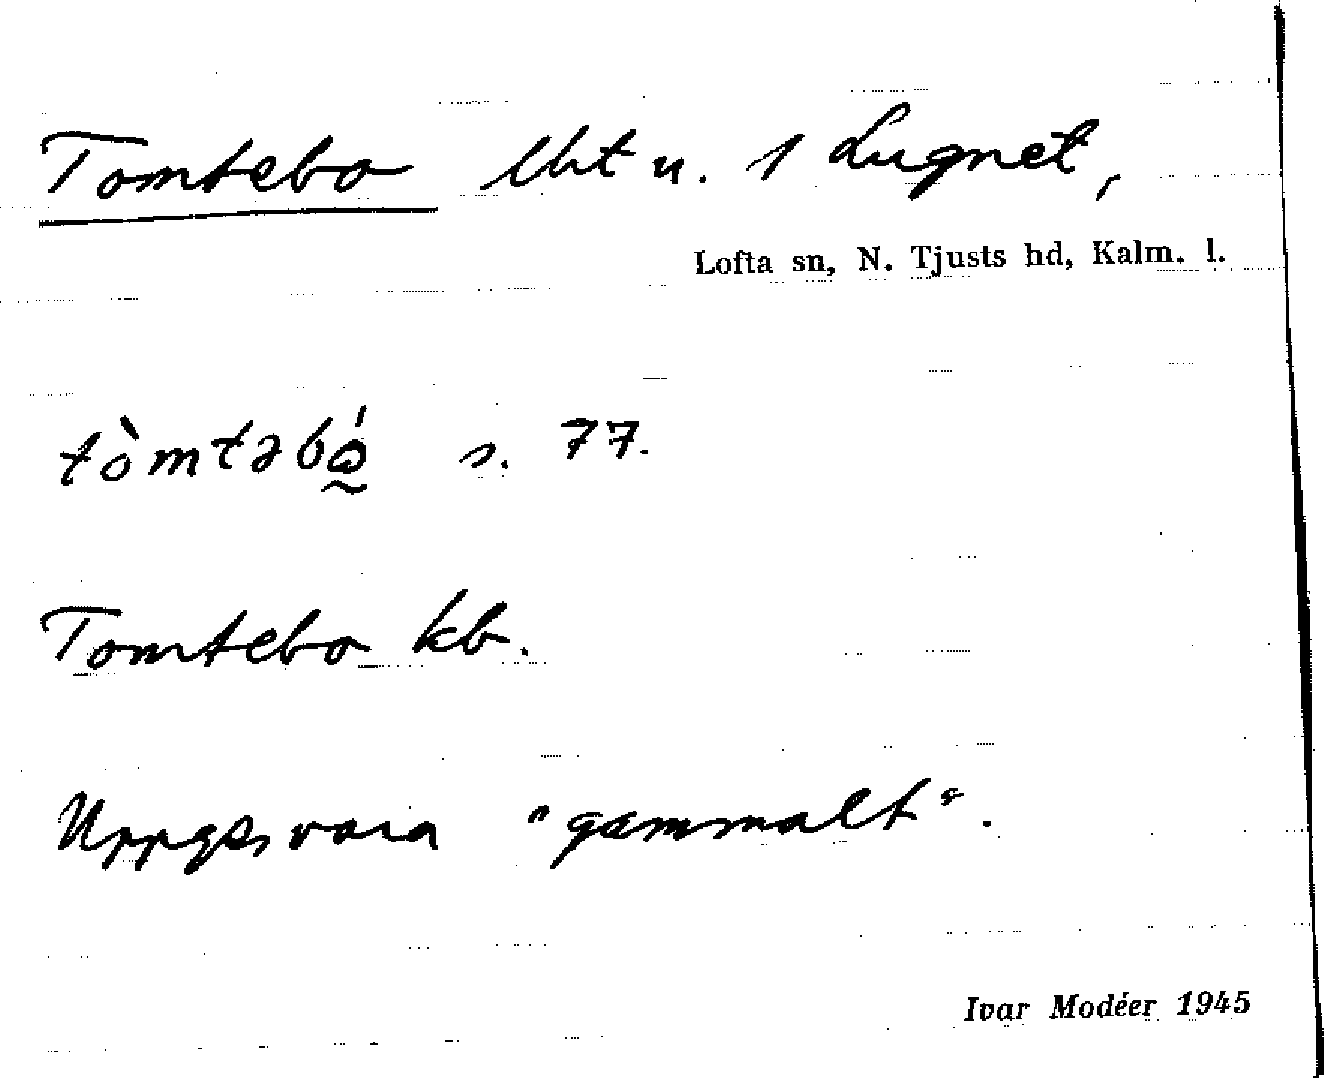 Tomtebo lht u. 1 Lugnet,
Lofta sn, N. Tjusts hd, Kalm. l.
tòmtəbó̰ s. 77.
Tomtebo kb.
Uppges vara "gammalt".
Ivar Modéer 1945